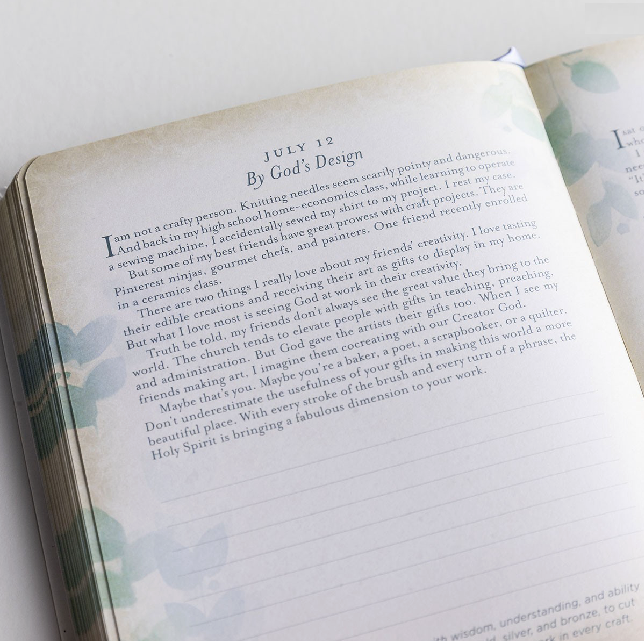 JULY 12
By God's Design
I am not a crafty person. Knitting needles seem scarily pointy and dangerous.
And back in my high school home-economics class, while learning to operate
a sewing machine, I accidentally sewed my shirt to my project. I rest my case.
But some of my best friends have great prowess with craft projects. They are
Pinterest ninjas, gourmet chefs, and painters. One friend recently enrolled
in a ceramics class.
There are two things I really love about my friends' creativity. I love tasting
their edible creations and receiving their art as gifts to display in my home.
But what I love most is seeing God at work in their creativity.
Truth be told, my friends don't always see the great value they bring to the
world. The church tends to elevate people with gifts in teaching, preaching,
and administration. But God gave the artists their gifts too. When I see my
friends making art, I imagine them cocreating with our Creator God.
Maybe that's you. Maybe you're a baker, a poet, a scrapbooker, or a quilter.
Don't underestimate the usefulness of your gifts in making this world a more
beautiful place. With every stroke of the brush and every turn of a phrase, the
Holy Spirit is bringing a fabulous dimension to your work.
wisdom, understanding, and ability
silver, and bronze, to cut
every craft.